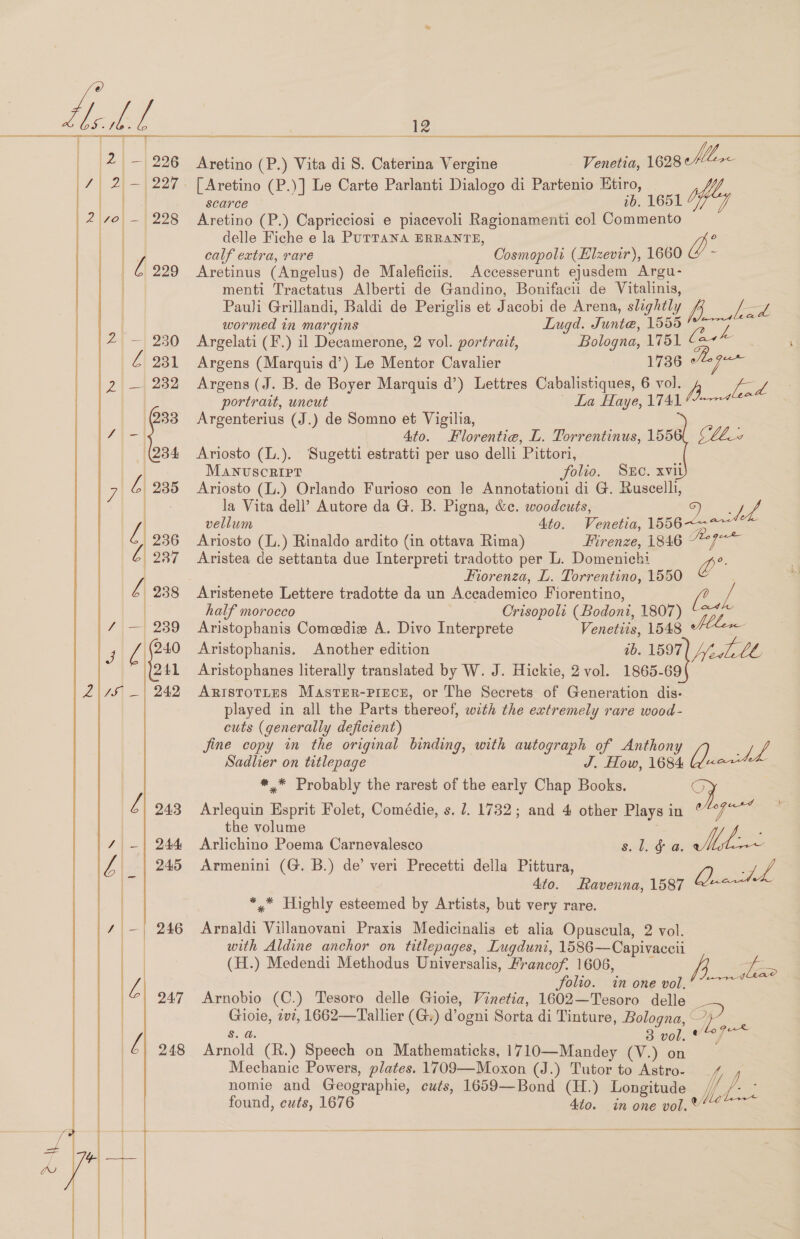 12
2 – 226 Aretino (P.) Vita di S. Caterina Vergine Venetia, 1628 Allen
1 2 – 227 [Aretino (P.)] Le Carte Parlanti Dialogo di Partenio Etiro,
scarce ib. 1651
2 10 – 228 Aretino (P.) Capricciosi e piacevoli Ragionamenti col Commento
delle Fiche e la PUTTANA ERRANTE,
calf extra, rare Cosmopoli (Elzevir), 1660
6 229 Aretinus (Angelus) de Maleficiis. Accesserunt ejusdem Argu-
menti Tractatus Alberti de Gandino, Bonifacii de Vitalinis,
Pauli Grillandi, Baldi de Periglis et Jacobi de Arena, slightly
wormed in margins Lugd. Juntæ, 1555 Bumstead
2 – 230 Argelati (F.) il Decamerone, 2 vol. portrait, Bologna, 1751 Cash
6 231 Argens (Marquis d') Le Mentor Cavalier 1736 Hogue
2 – 232 Argens (J. B. de Boyer Marquis d') Lettres Cabalistiques, 6 vol.
portrait, uncut La Haye, 1741 Bumstead
233 Argenterius (J.) de Somno et Vigilia,
1 – 4to. Florentiæ, L. Torrentinus, 1556 Ellis
234 Ariosto (L.). Sugetti estratti per uso delli Pittori,
MANUSCRIPT folio. SEC. xvii
7 6 235 Ariosto (L.) Orlando Furioso con le Annotationi di G. Ruscelli,
la Vita dell' Autore da G. B. Pigna, &c. woodcuts,
vellum 4to. Venetia, 1556 Quaritch
6 236 Ariosto (L.) Rinaldo ardito (in ottava Rima) Firenze, 1846 Hogue
6 237 Aristea de settanta due Interpreti tradotto per L. Domenichi
Fiorenza, L. Torrentino, 1550 Do.
6 238 Aristenete Lettere tradotte da un Accademico Fiorentino,
half morocco Crisopoli (Bodoni, 1807) Cash
1 – 239 Aristophanis Comœdiæ A. Divo Interprete Venetiis, 1548 Allen
3 6 240 Aristophanis. Another edition ib. 1597 Westell
241 Aristophanes literally translated by W. J. Hickie, 2 vol. 1865-69
2 15 – 242 ARISTOTLES MASTER-PIECE, or The Secrets of Generation dis-
played in all the Parts thereof, with the extremely rare wood-
cuts (generally deficient)
fine copy in the original binding, with autograph of Anthony
Sadlier on titlepage J. How, 1684 Quaritch
*** Probably the rarest of the early Chap Books.
6 243 Arlequin Esprit Folet, Comédie, s. l. 1732; and 4 other Plays in Hogue
the volume
1 – 244 Arlichino Poema Carnevalesco s. l. & a.
6 – 245 Armenini (G. B.) de' veri Precetti della Pittura,
4to. Ravenna, 1587 Quaritch
*** Highly esteemed by Artists, but very rare.
1 – 246 Arnaldi Villanovani Praxis Medicinalis et alia Opuscula, 2 vol.
with Aldine anchor on titlepages, Lugduni, 1586—Capivaccii
(H.) Medendi Methodus Universalis, Francof. 1606,
folio. in one vol. Bumstead
6 247 Arnobio (C.) Tesoro delle Gioie, Vinetia, 1602—Tesoro delle
Gioie, ivi, 1662—Tallier (G.) d'ogni Sorta di Tinture, Bologna,
s. a. 3 vol. Hogue
6 248 Arnold (R.) Speech on Mathematicks, 1710—Mandey (V.) on
Mechanic Powers, plates. 1709—Moxon (J.) Tutor to Astro-
nomie and Geographie, cuts, 1659—Bond (H.) Longitude
found, cuts, 1676 4to. in one vol.